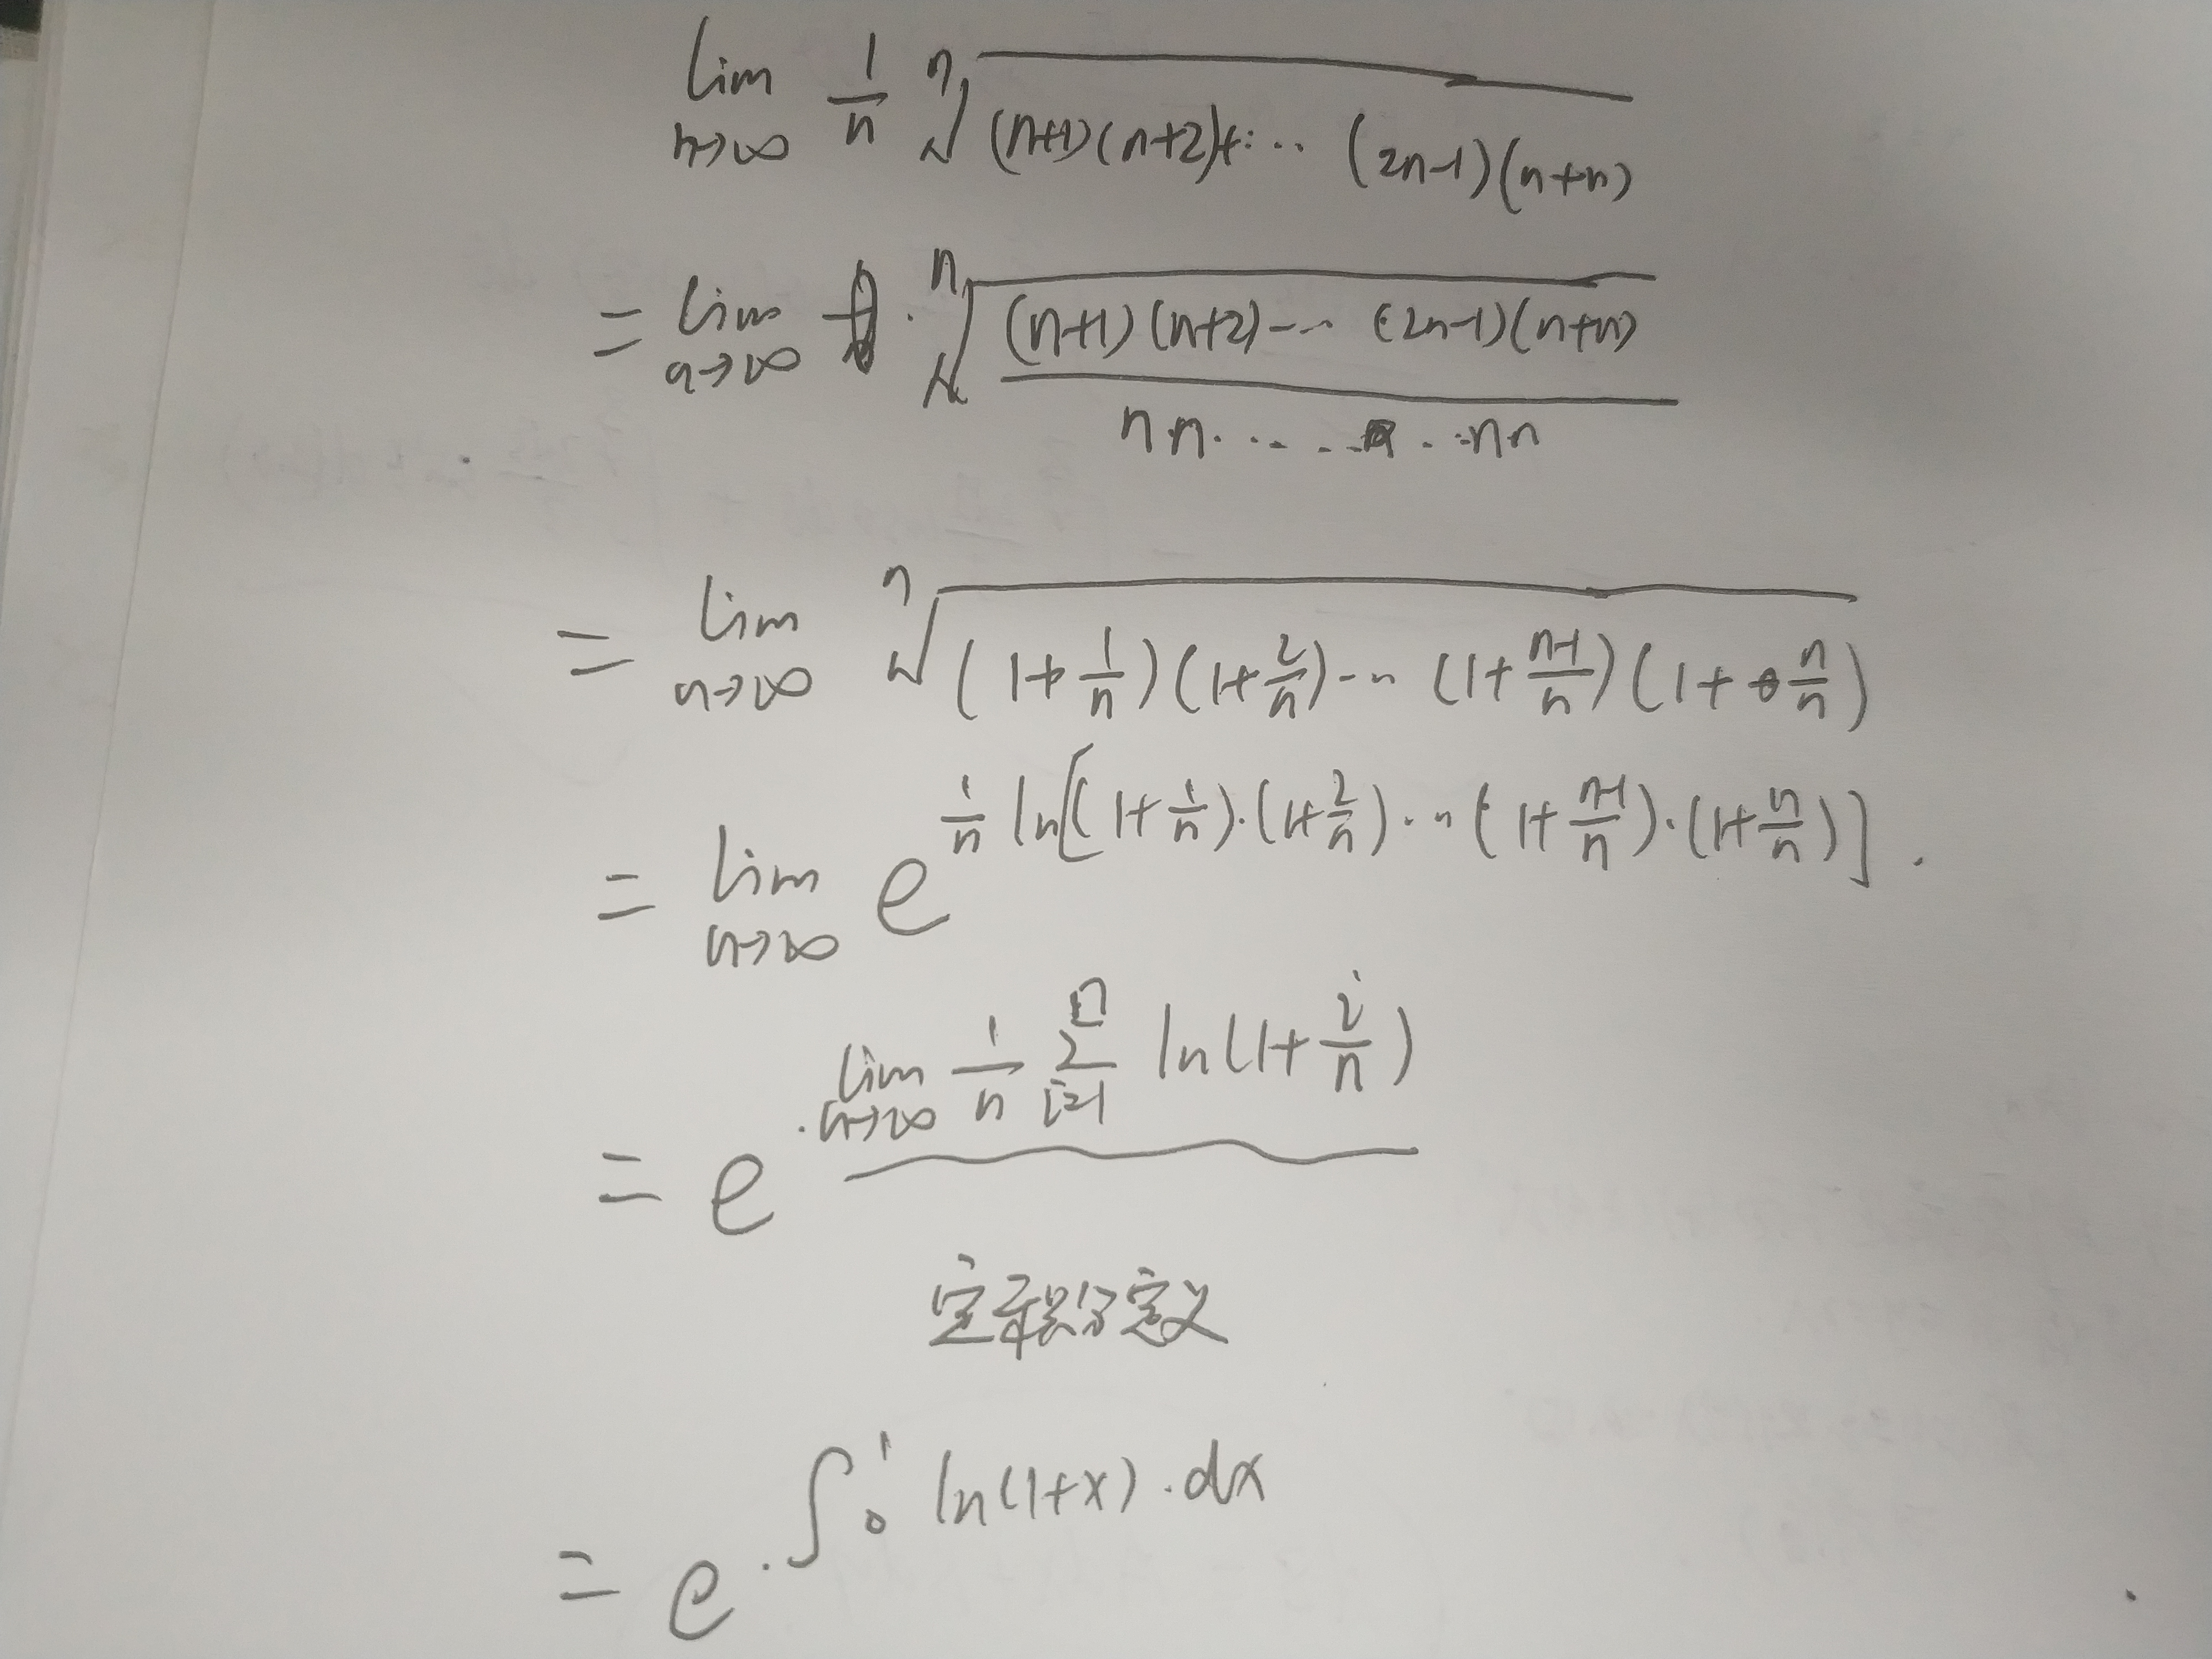 lim n→∞ 1/n ⁿ√((n+1)(n+2)+… (2n-1)(n+n))
= lim n→∞ · ⁿ√((n+1)(n+2)…(2n-1)(n+n) / n·n……·nn)
= lim n→∞ ⁿ√((1+1/n)(1+2/n)…(1+(n-1)/n)(1+n/n))
= lim n→∞ e^(1/n ln[(1+1/n)·(1+2/n)…(1+(n-1)/n)·(1+n/n)]) .
= e^(lim n→∞ 1/n ∑_{i=1}^{n} ln(1+i/n))
定积分定义
= e^(∫₀¹ ln(1+x)·dx)